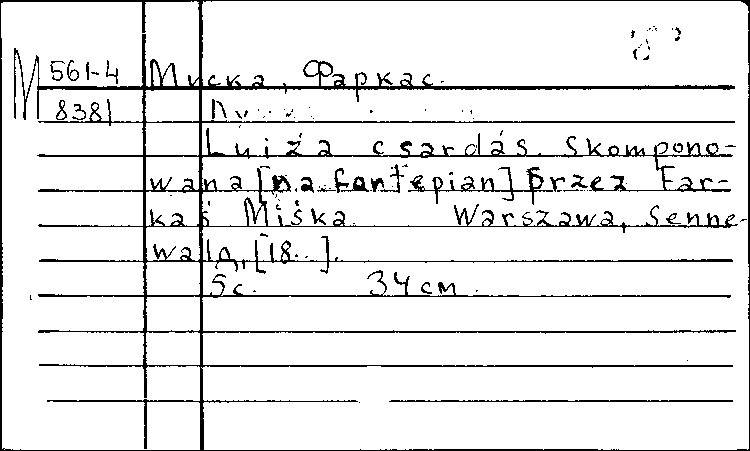 "8"
М 561-4 Миска, Фаркас.
8381
Luiza csardás. Skompono-
wana [na fortepian] przez Far-
kaś Miśka. Warszawa, Senne-
wald, [18..].
5 с. 34 см.